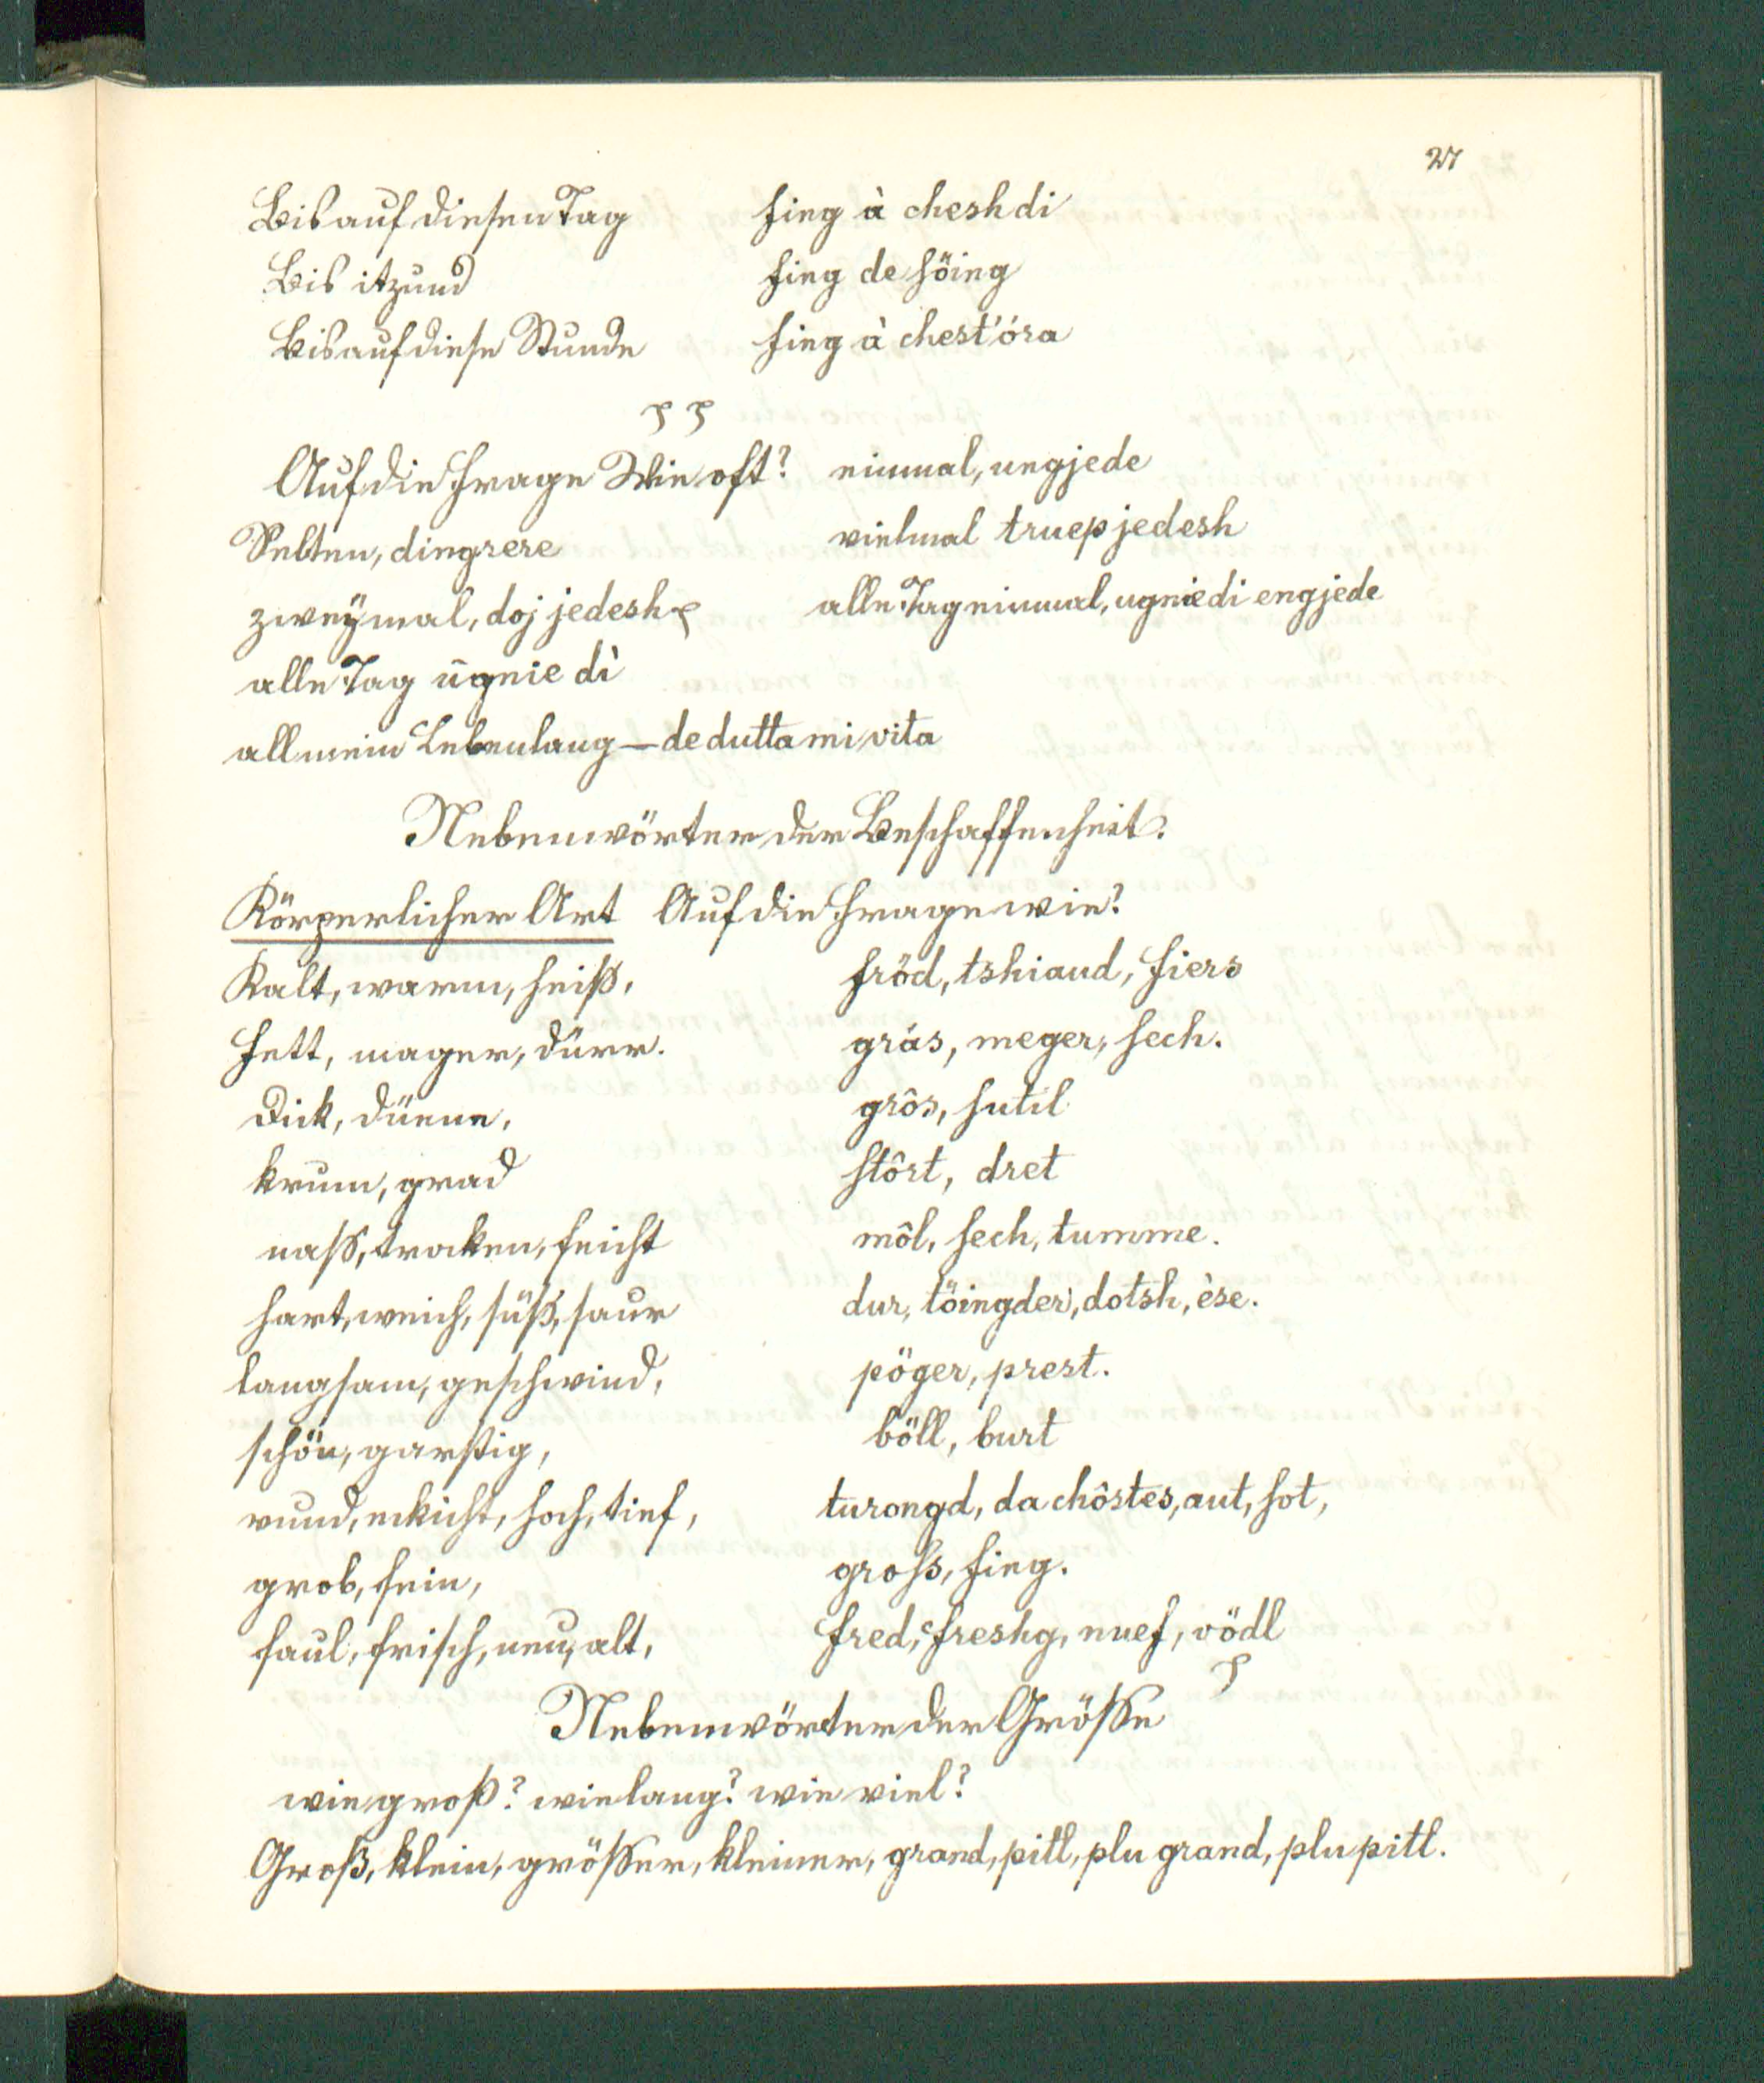 27
Bis auf diesen Tag fing à cheshdi
Bis itzund fing de höing
Bis auf diese Stunde fing à chest'óra
Auf die Frage Wie oft? einmal, ungjede
Selten, dingrere vielmal truep jedesh
zweÿmal, doj jedesh alle Tag einmal, ugniedi engjede
alle Tag ügnie dì
all mein Lebenlang — de dutta mi vita
Nebenwörter der Beschaffenheit.
Körperlicher Art Auf die Frage wie?
Kalt, warm, heiß, fröd, tshiaud, fiers
fett, mager, dürr. grás, meger, sech.
Dick, düenn, grôs, sutil
krum, grad stôrt, dret
nass, troken, feicht môl, sech, tumme.
hart, weich, süß, saur dur, töingder, dotsh, èse.
langsam, geschwind, pöger, prest.
schön, garstig, böll, burt
rund, eckicht, hoch, tief, turongd, da chôstes, aut, sot,
grob, fein, gross, fing.
faul, frisch, neu, alt, fred, freshg, nuef, vödl
Nebenwörter der Grösse
wie groß? wie lang? wie viel?
Groß, klein, grösser, kleiner, grand, pitl, plu grand, plu pitl.